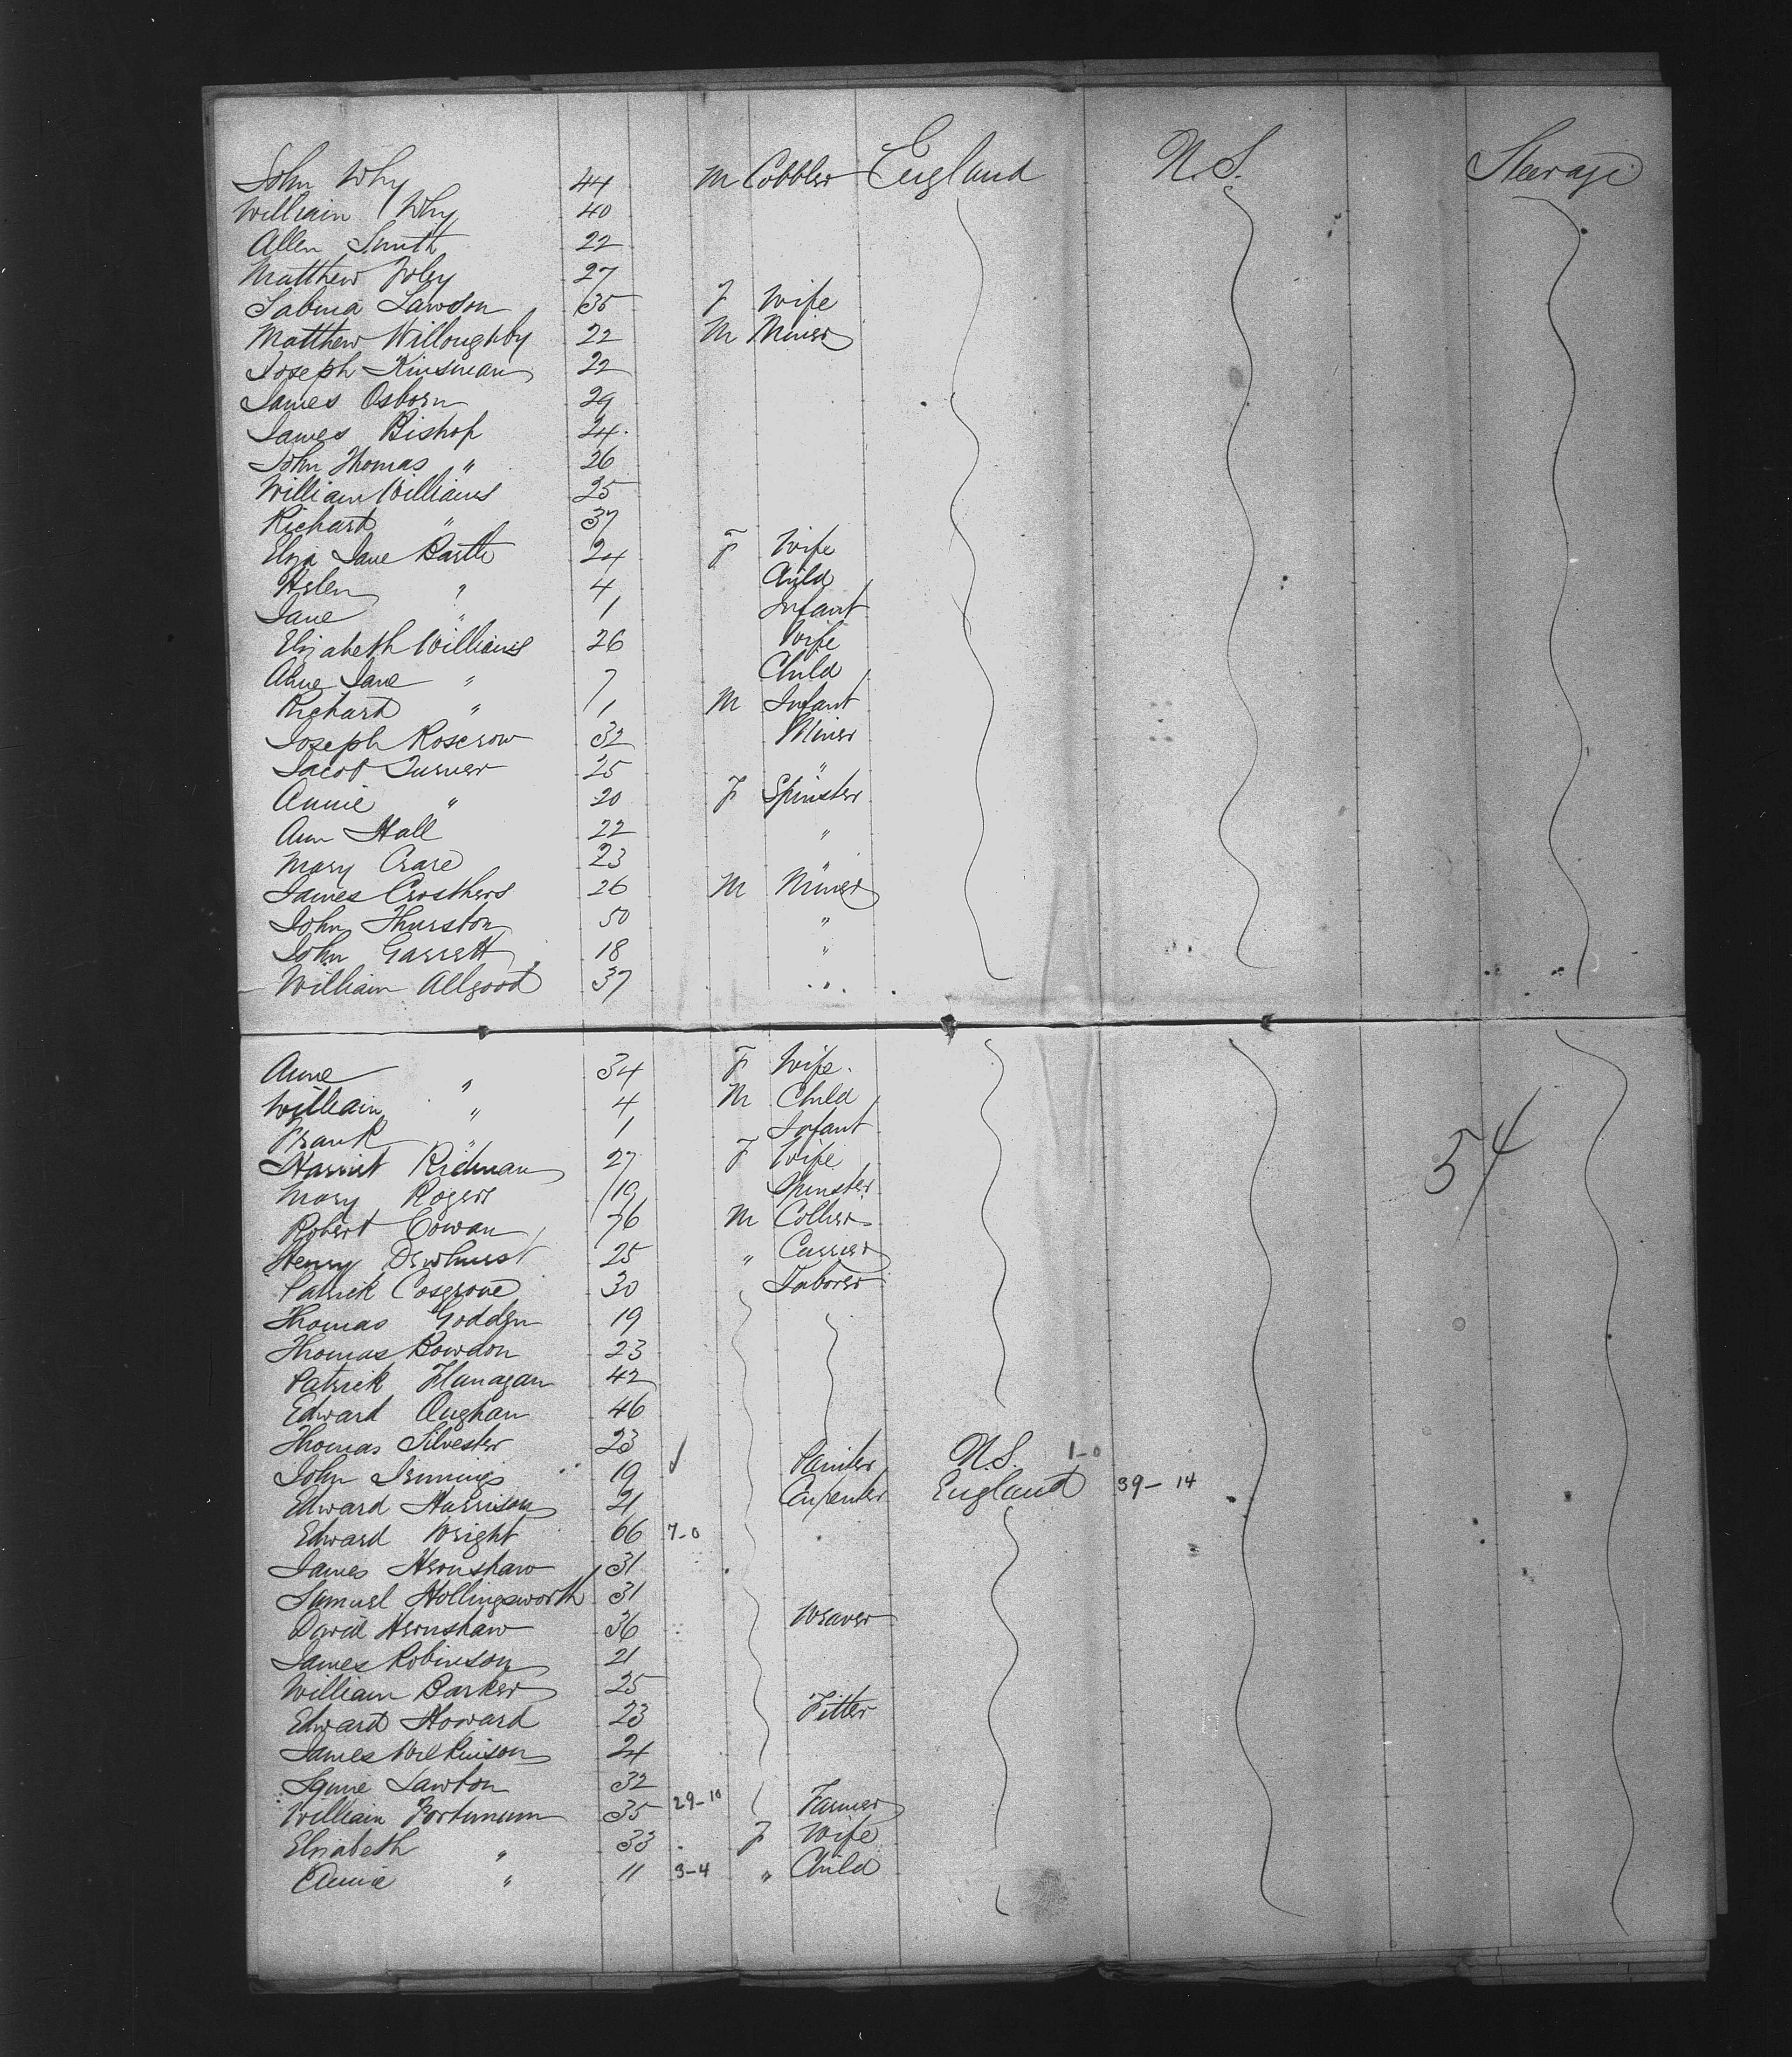 John Why 44 M Cobbler England U.S. Steerage
William Why 40
Allen Smith 22
Matthew Foley 27
Sabina Lawson 35 F Wife
Matthew Willoughby 22 M Miner
Joseph Kinsman 22
James Osborn 29
James Bishop 24
John Thomas " 26
William Williams 25
Richard " 37
Eliza Jane Bartle 24 F Wife
Helen " 4 Child
Jane " 1 Infant
Elizabeth Williams 26 Wife
Anne Jane " 7 Child
Richard " 1 M Infant
Joseph Roscrow 32 Miner
Jacob Turner 25 "
Annie " 20 F Spinster
Ann Hall 22 "
Mary Crare 23 "
James Crothers 26 M Miner
John Thurston 50 "
John Garrett 18 "
William Allgood 37 "
Anne " 34 F Wife
William " 4 M Child
Frank " 1 Infant
Harriet Ridman 27 F Wife
Mary Rogers 19 Spinster
54
Robert Cowan 76 M Collier
Henry Dewhurst 25 " Currier
Patrick Cosgrove 30 Laborer
Thomas Godden 19
Thomas Bowdon 23
Patrick Flanagan 42
Edward Aughan 46
Thomas Silvester 23
John Jennings 19 Painter U.S. 1-0
Edward Harrison 21 Carpenter England 39-14
Edward Wright 66 7-0
James Hernshaw 31
Samuel Hollingsworth 31
David Hernshaw 36 Weaver
James Robinson 21
William Barker 25
Edward Howard 23 Fitter
James Wilkinson 24
Lawton 32
William Fortunum 35 29-10 Farmer
Elizabeth " 33 F Wife
Annie " 11 3-4 " Child